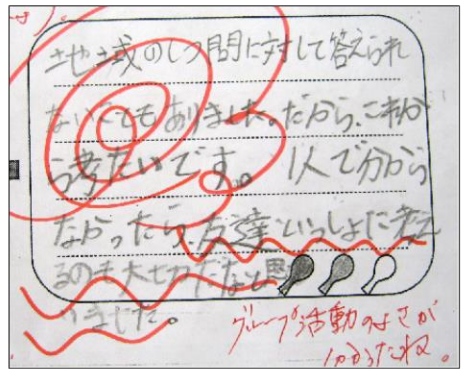 地域のしつ問に対して答えられ
ないこともありました。だから、これか
ら考たいです。1人で分から
なかったら、友達といっしょに考え
るのも大せつだなと思
いました。
グループ活動のよさが
分かったね。